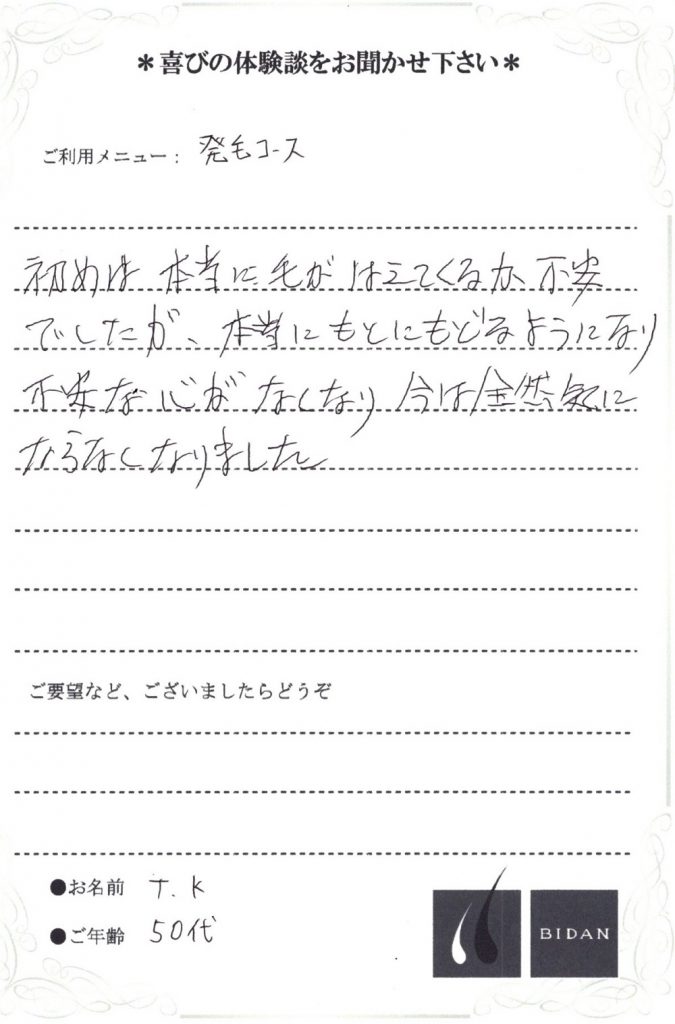 ＊喜びの体験談をお聞かせ下さい＊
ご利用メニュー： 発毛コース
初めは 本当に毛が はえてくるか 不安
でしたが、本当にもとにもどるようになり
不安な心が なくなり 今は全然気に
ならなくなりました
ご要望など、ございましたらどうぞ
●お名前 T.K
●ご年齢 50代
BIDAN